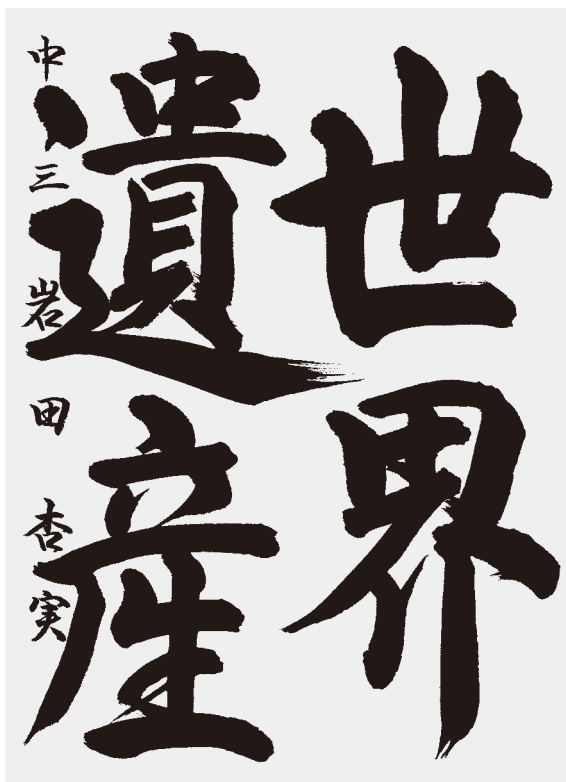 世界
遺産
中三 岩田 杏実